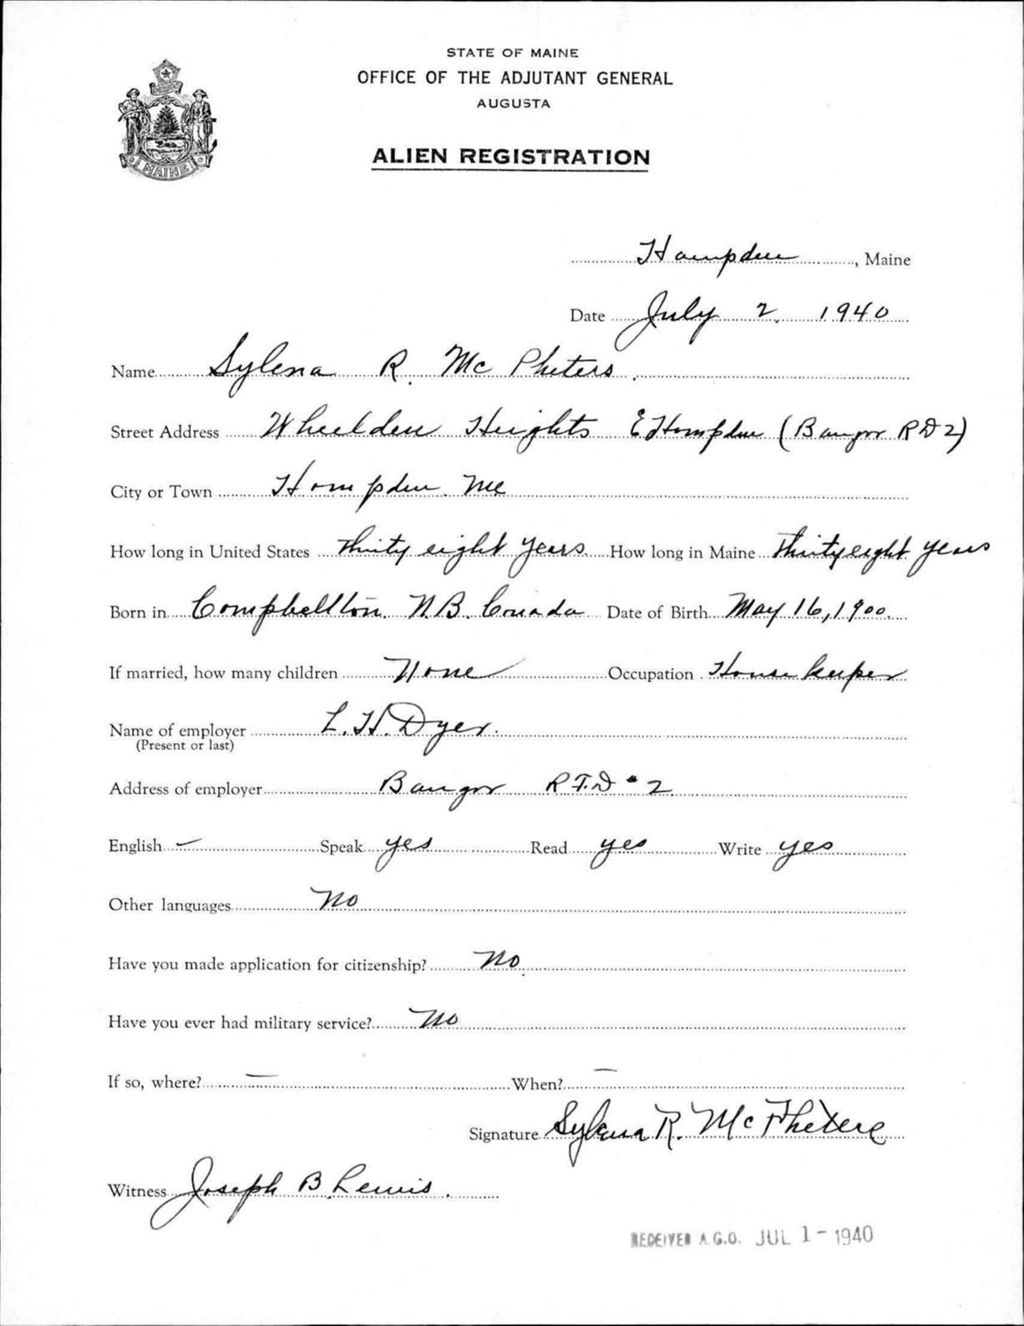 STATE OF MAINE
OFFICE OF THE ADJUTANT GENERAL
AUGUSTA
ALIEN REGISTRATION
MAINE
Hampden, Maine
Date July 2, 1940
Name Sylena R. McPheters.
Street Address Wheelden Heights E Hampden (Bangor RD2)
City or Town Hampden. Me
How long in United States Thirty eight years How long in Maine Thirty eight years
Born in Campbellton, N.B. Canada Date of Birth May 16, 1900
If married, how many children None Occupation Housekeeper
Name of employer L. H. Dyer.
(Present or last)
Address of employer Bangor R.F.D #2
English — Speak yes Read yes Write yes
Other languages No
Have you made application for citizenship? No
Have you ever had military service? No
If so, where? — When? —
Signature Sylena R. McPheters
Witness Joseph B. Lewis.
RECEIVED A.G.O. JUL 1 - 1940